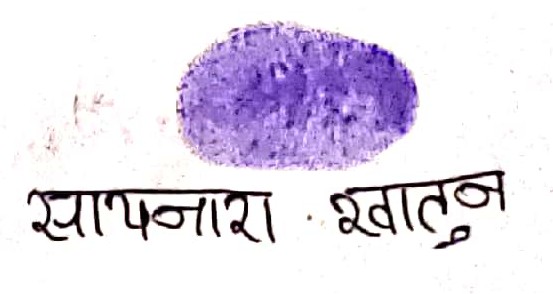 सायनारा खातुन